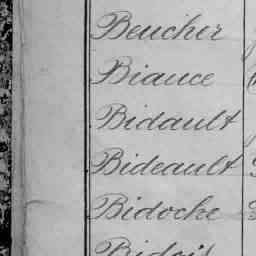 Beucher
Biauce
Bidault
Bideault
Bidoche